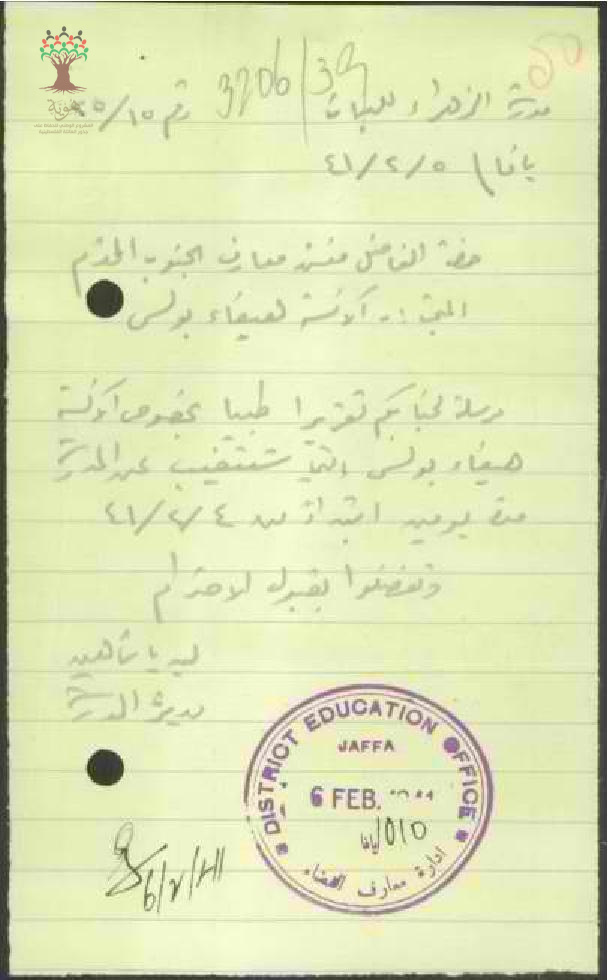 هوية
3206/39
مدرسة الزهراء للبنات رقم ١٥/٢٥
يافا / ٤١/٢/٥
حضرة الفاضل مفتش معارف الجنوب المحترم
المبحث :- الآنسة هيفاء بولس
مرسلة لجنابكم تقريرا طبيا بخصوص الآنسة
هيفاء بولس التي ستتغيب عن المدرسة
مدة يومين ابتداء من ٤١/٢/٤
وتفضلوا بقبول الاحترام
ليديا شاهين
مديرة المدرسة
DISTRICT EDUCATION OFFICE
JAFFA
6 FEB.
يافا/510
ادارة معارف القضاء
6/2/41